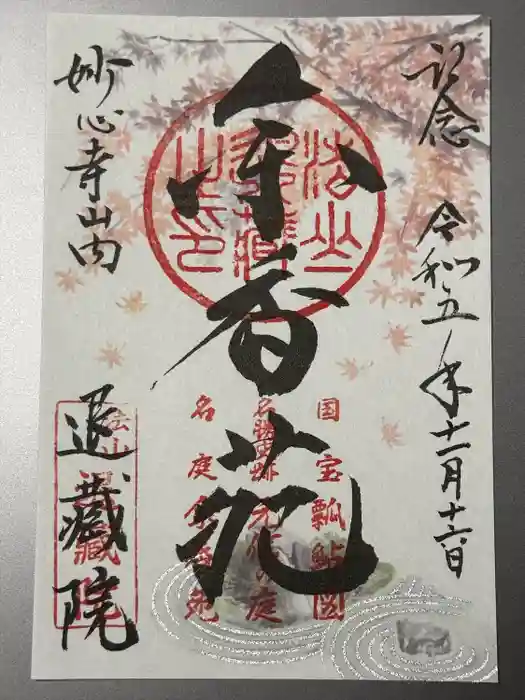 記念
令和五年十一月十六日
余香苑
国宝瓢鮎図
名勝史跡元信の庭
名庭余香苑
妙心寺山内
退藏院
法山退藏院